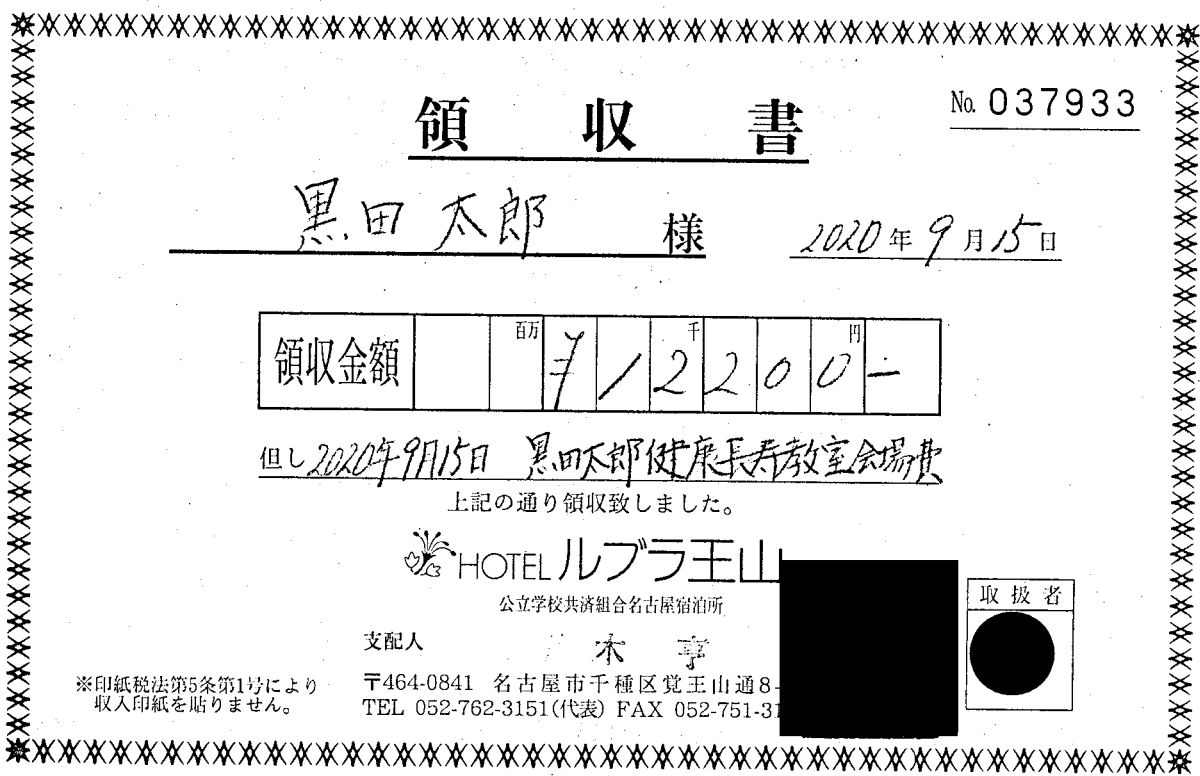 領収書
No. 037933
黒田太郎 様
2020年9月15日
領収金額 百万 千 円
¥12200-
但し 2020年9月15日 黒田太郎健康長寿教室会場費
上記の通り領収致しました。
HOTEL ルブラ王山
公立学校共済組合名古屋宿泊所
取扱者
支配人 木 亨
※印紙税法第5条第1号により
収入印紙を貼りません。
〒464-0841 名古屋市千種区覚王山通8-
TEL 052-762-3151(代表) FAX 052-751-31